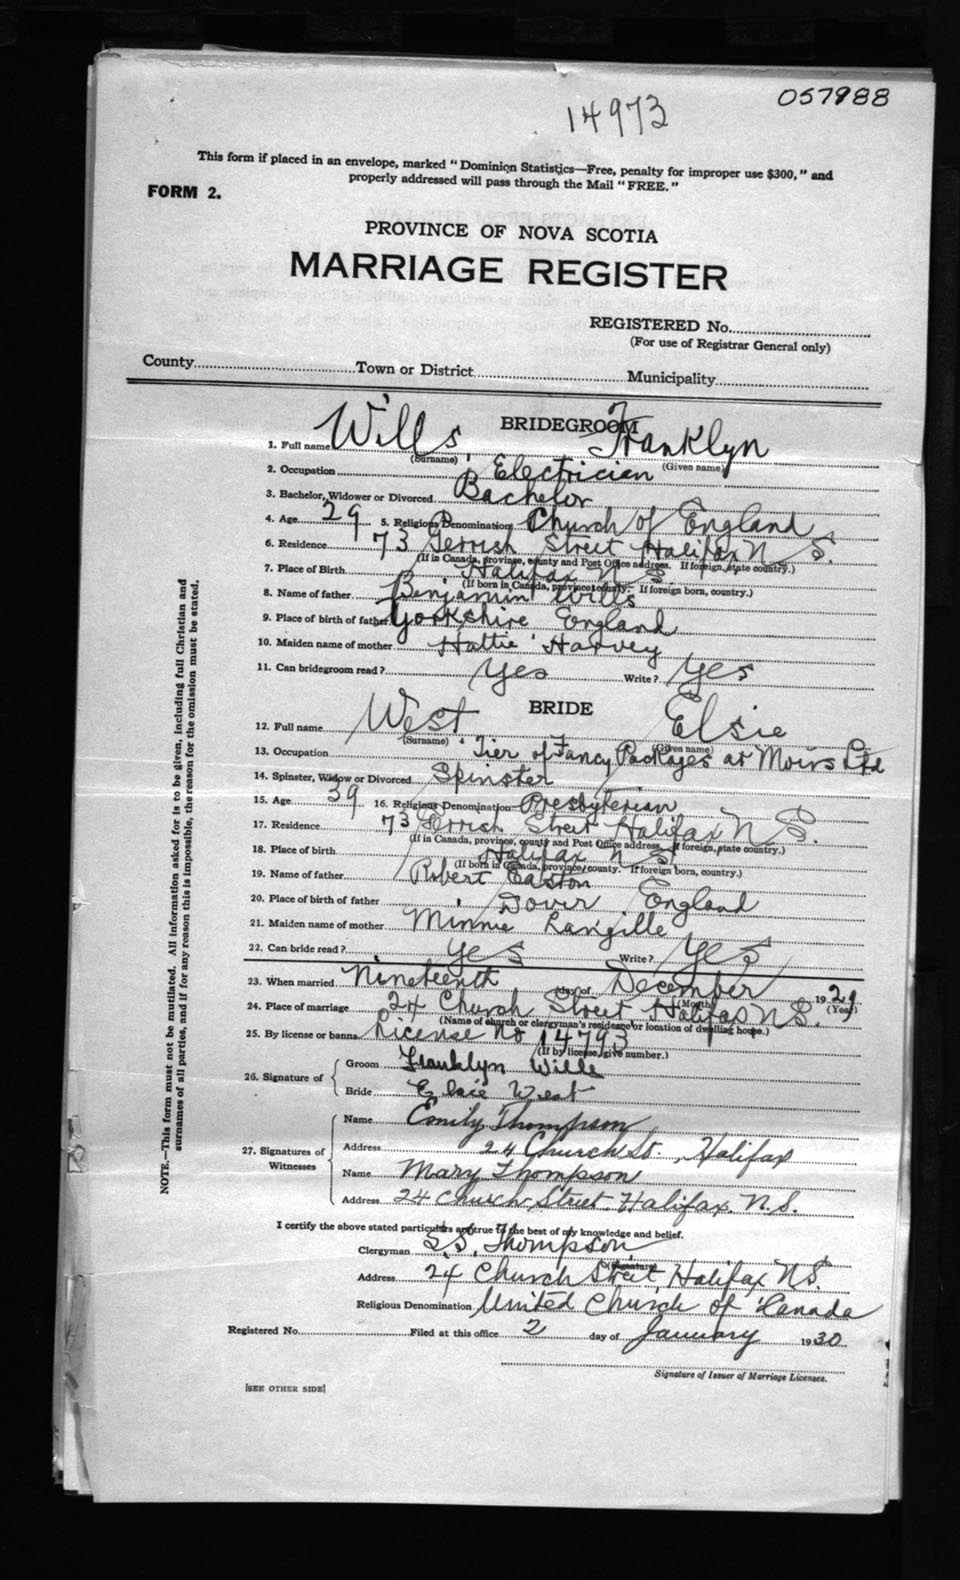 057988
14973
This form if placed in an envelope, marked "Dominion Statistics—Free, penalty for improper use $300," and
properly addressed will pass through the Mail "FREE."
FORM 2.
PROVINCE OF NOVA SCOTIA
MARRIAGE REGISTER
REGISTERED No.
(For use of Registrar General only)
County Town or District Municipality
BRIDEGROOM
1. Full name Wills, Franklyn
(Surname) (Given name)
2. Occupation Electrician
3. Bachelor, Widower or Divorced Bachelor
4. Age 29 5. Religious Denomination Church of England
6. Residence 73 Gerrish Street Halifax N S.
(If in Canada, province, county and Post Office address. If foreign, state country.)
7. Place of Birth Halifax N S
(If born in Canada, province, county. If foreign born, country.)
8. Name of father Benjamin Wills
9. Place of birth of father Yorkshire England
10. Maiden name of mother Hattie Harvey
11. Can bridegroom read? Yes Write? Yes
BRIDE
12. Full name West Elsie
(Surname) (Given name)
13. Occupation Tier of Fancy Packages at Moirs Ltd
14. Spinster, Widow or Divorced Spinster
15. Age 39 16. Religious Denomination Presbyterian
17. Residence 73 Gerrish Street Halifax N S.
(If in Canada, province, county and Post Office address. If foreign, state country.)
18. Place of birth Halifax N S.
(If born in Canada, province, county. If foreign born, country.)
19. Name of father Robert Easton
20. Place of birth of father Dover England
21. Maiden name of mother Minnie Langille
22. Can bride read? Yes Write? Yes
23. When married Nineteenth day of December 1929
(Month) (Year)
24. Place of marriage 24 Church Street Halifax N S.
(Name of church or clergyman's residence or location of dwelling house.)
25. By license or banns License No 14793
(If by license, give number.)
26. Signature of Groom Franklyn Wills
Bride Elsie West
27. Signatures of Witnesses Name Emily Thompson
Address 24 Church St., Halifax
Name Mary Thompson
Address 24 Church Street. Halifax. N.S.
I certify the above stated particulars are true to the best of my knowledge and belief.
Clergyman Thompson
(Signature)
Address 24 Church Street, Halifax N S.
Religious Denomination United Church of Canada
Registered No. Filed at this office 2 day of January 1930
Signature of Issuer of Marriage Licenses.
[SEE OTHER SIDE]
NOTE.—This form must not be mutilated. All information asked for is to be given, including full Christian and
surnames of all parties, and if for any reason this is impossible, the reason for the omission must be stated.